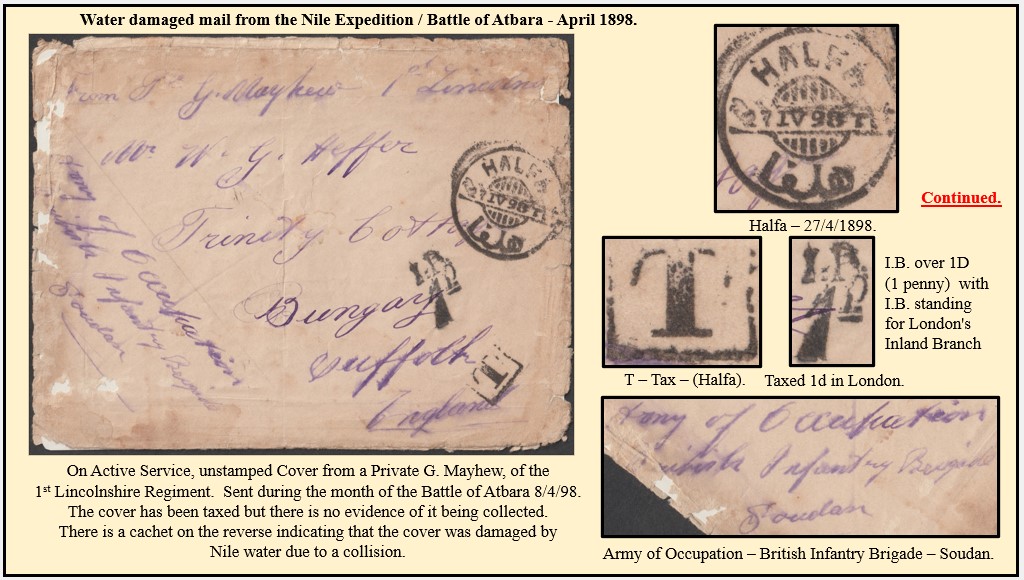 Water damaged mail from the Nile Expedition / Battle of Atbara - April 1898.
From Pte G. Mayhew 1st Lincolns
Mr W. G. Heffer
Trinity Cottage
Bungay
Suffolk
England
Army of Occupation
British Infantry Brigade
Soudan
HALFA
27 IV 98 T
حلفا
I.B.
1D
T
HALFA
27 IV 98 T
حلفا
Halfa – 27/4/1898.
Continued.
T
I.B.
1D
I.B. over 1D
(1 penny) with
I.B. standing
for London's
Inland Branch
T – Tax – (Halfa).
Taxed 1d in London.
Army of Occupation
British Infantry Brigade
Soudan
Army of Occupation – British Infantry Brigade – Soudan.
On Active Service, unstamped Cover from a Private G. Mayhew, of the
1st Lincolnshire Regiment. Sent during the month of the Battle of Atbara 8/4/98.
The cover has been taxed but there is no evidence of it being collected.
There is a cachet on the reverse indicating that the cover was damaged by
Nile water due to a collision.